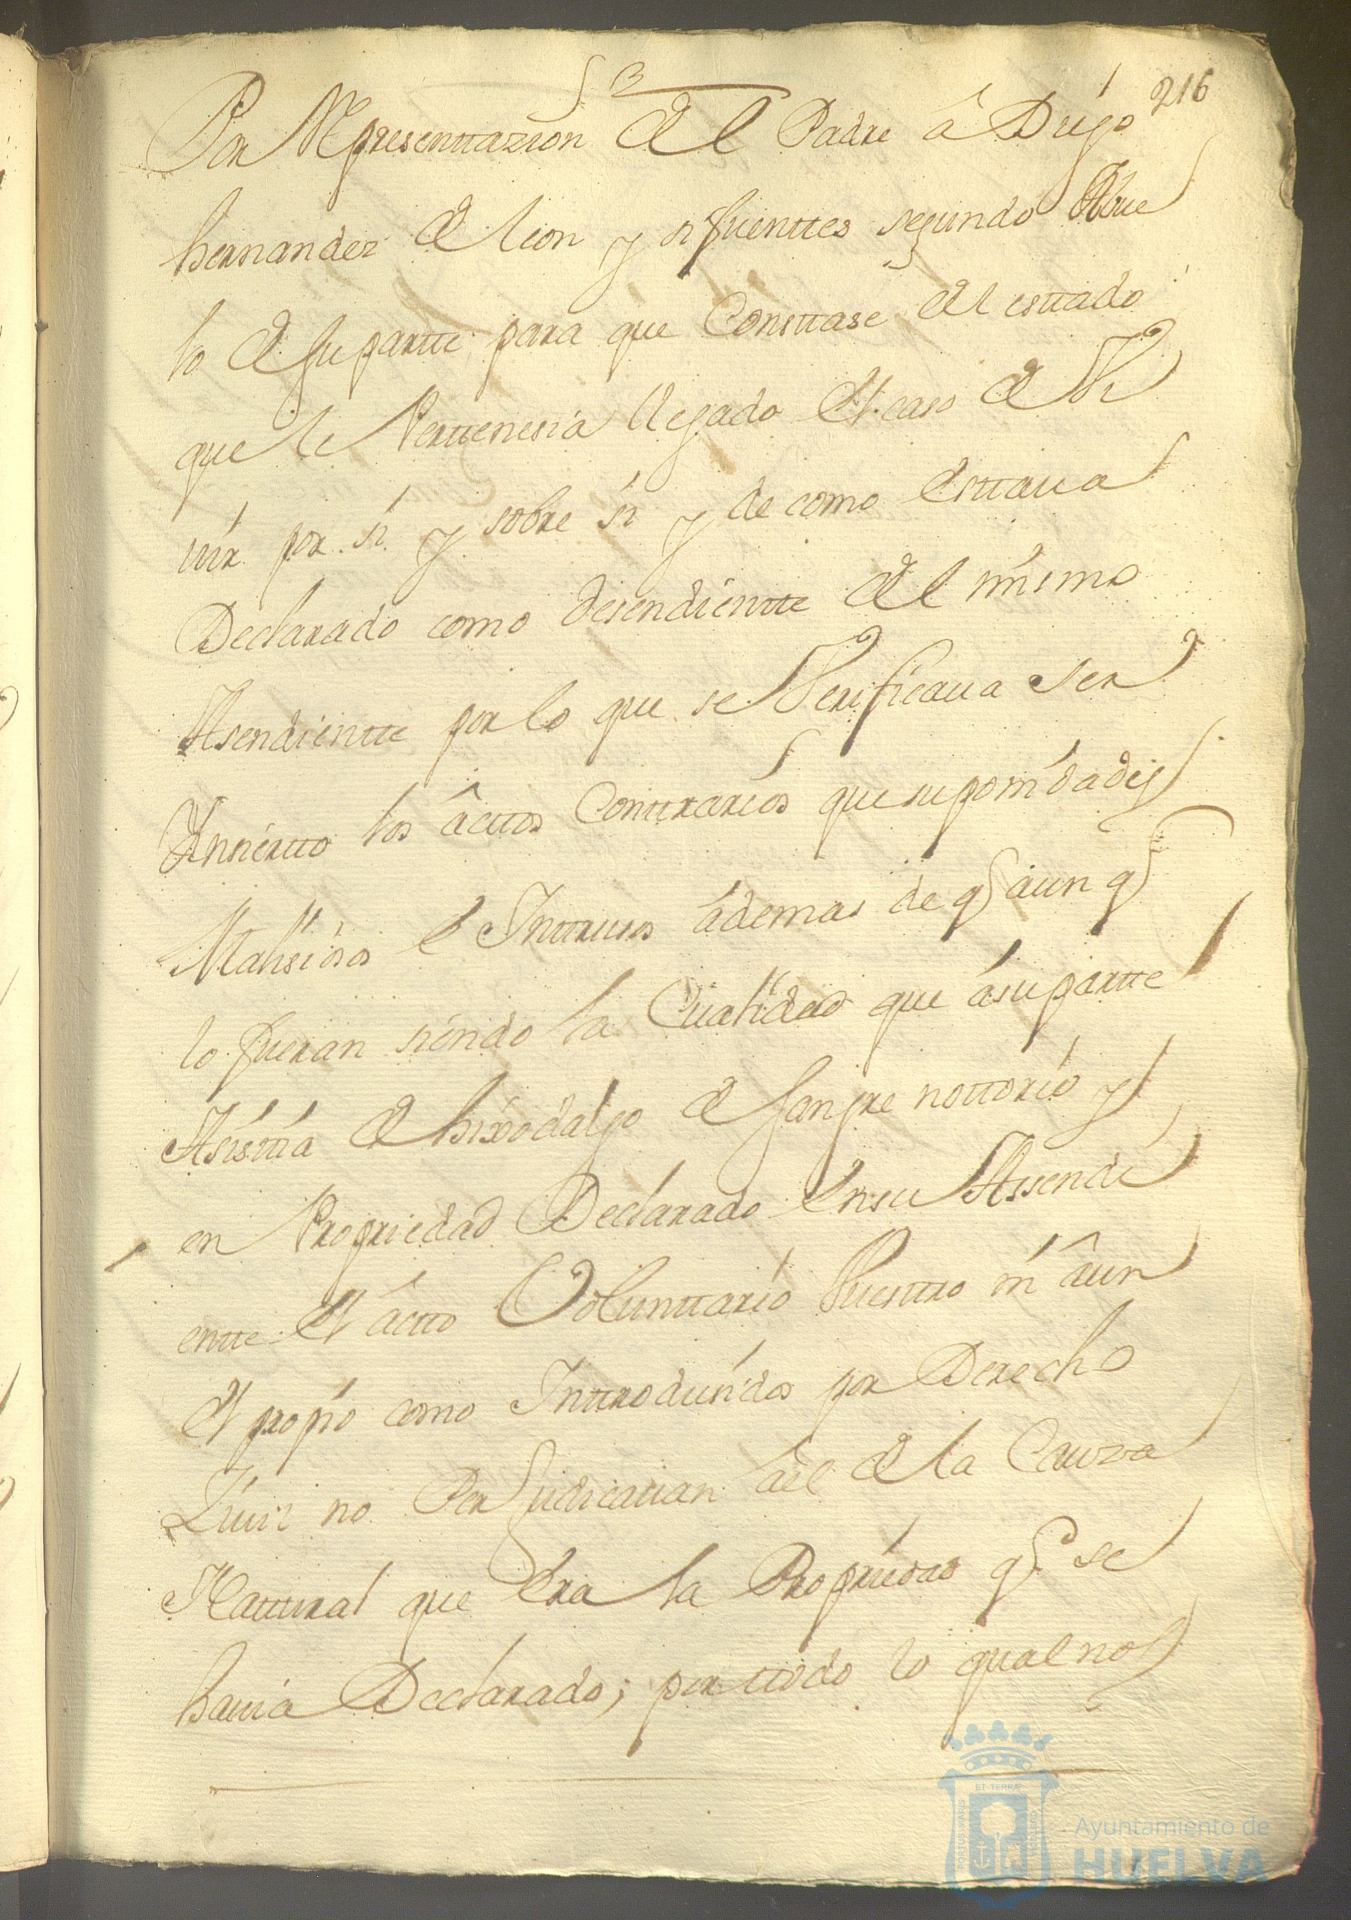 3 216
Por Representtazion del Padre â Diego
hernandez de leon y sifuenttes segundo Abue
lo de su partte para que Consttase del esttado
que le Perttenesia llegado el caso de Vi
uir por si y sobre si y de como esttaua
Declarado como desendientte del mismo
Asendientte por lo que se Verificaua ser
Ynsiertto los âcttos Conttrarios que suponia
Malisiosos e Inttrusos âdemas de q aun q
lo fueran siendo la Cualidad que âsu partte
Asisttia de hixodalgo de sangre nottorio y
en Propriedad Declarado en su Assendi
entte el âctto Voluntario Vuesttro ni âun
el propio como Inttrodusidos por Derecho
Siuil no Perjudicauan âel de la Cauza
Nattural que era la Propriedad q.e se
hauia Declarado; por ttodo lo qual nos
ET TERRÆ
Ayuntamiento de
HUELVA